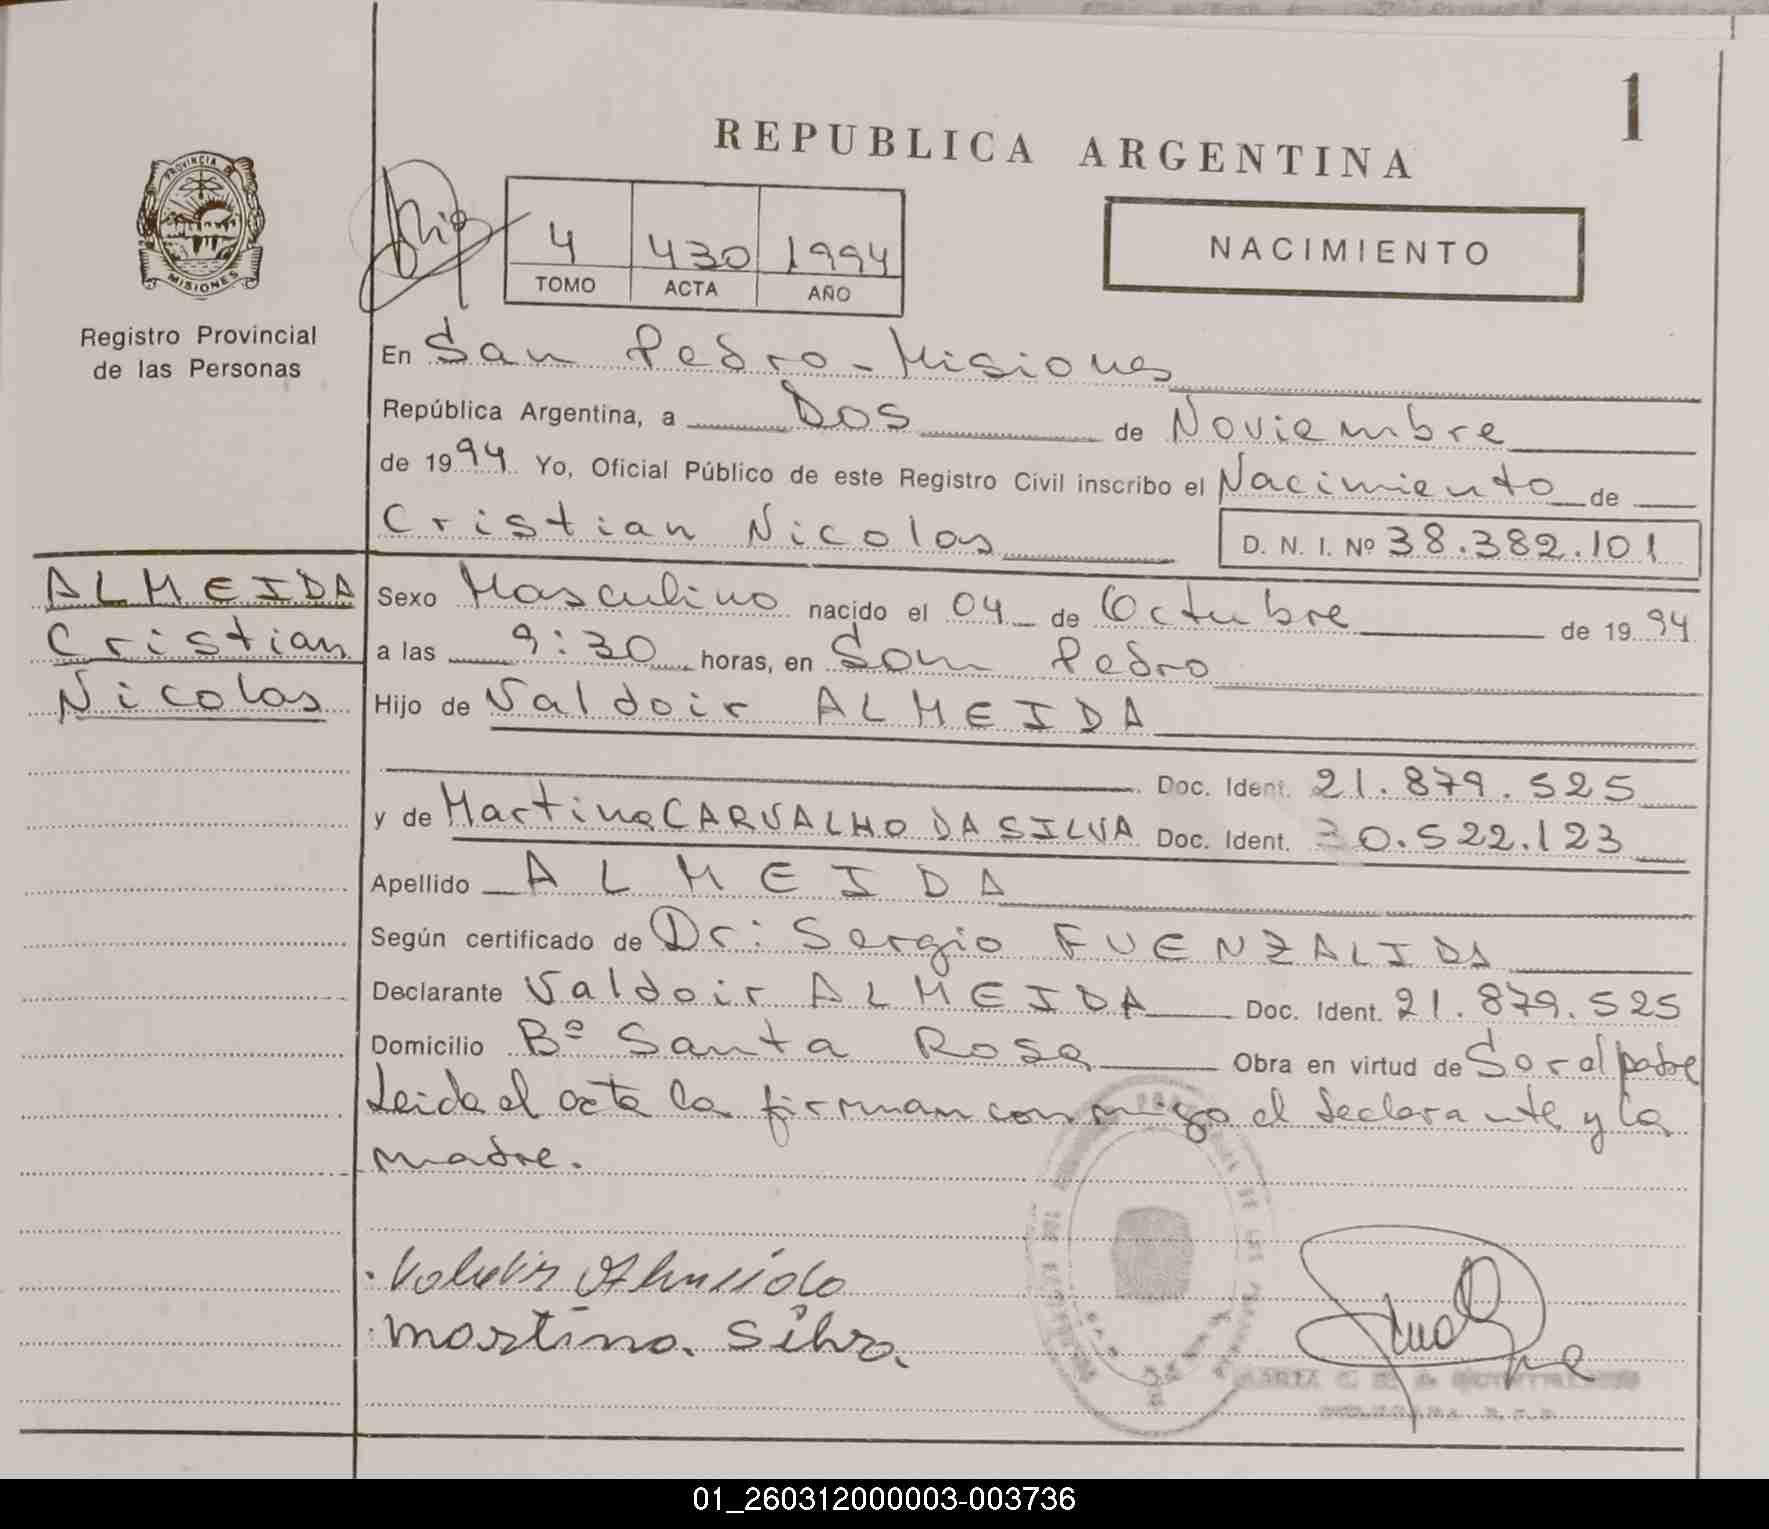 1
REPUBLICA ARGENTINA
PROVINCIA DE
MISIONES
Registro Provincial
de las Personas
4 430 1994
TOMO ACTA AÑO
NACIMIENTO
En San Pedro - Misiones
República Argentina, a Dos de Noviembre
de 1994 Yo, Oficial Público de este Registro Civil inscribo el Nacimiento de
Cristian Nicolas D. N. I. Nº 38.382.101
ALMEIDA
Cristian
Nicolas
Sexo Masculino nacido el 04 de Octubre de 1994
a las 9:30 horas, en San Pedro
Hijo de Valdoir ALMEIDA
Doc. Ident. 21.879.525
y de Martina CARVALHO DA SILVA Doc. Ident. 30.522.123
Apellido ALMEIDA
Según certificado de Dr: Sergio FUENZALIDA
Declarante Valdoir ALMEIDA Doc. Ident. 21.879.525
Domicilio Bº Santa Rosa Obra en virtud de Ser el padre
Leida el acta la firman conmigo el declarante y la
madre.
Valdoir Almeida
Martina. Silva.
01_260312000003-003736